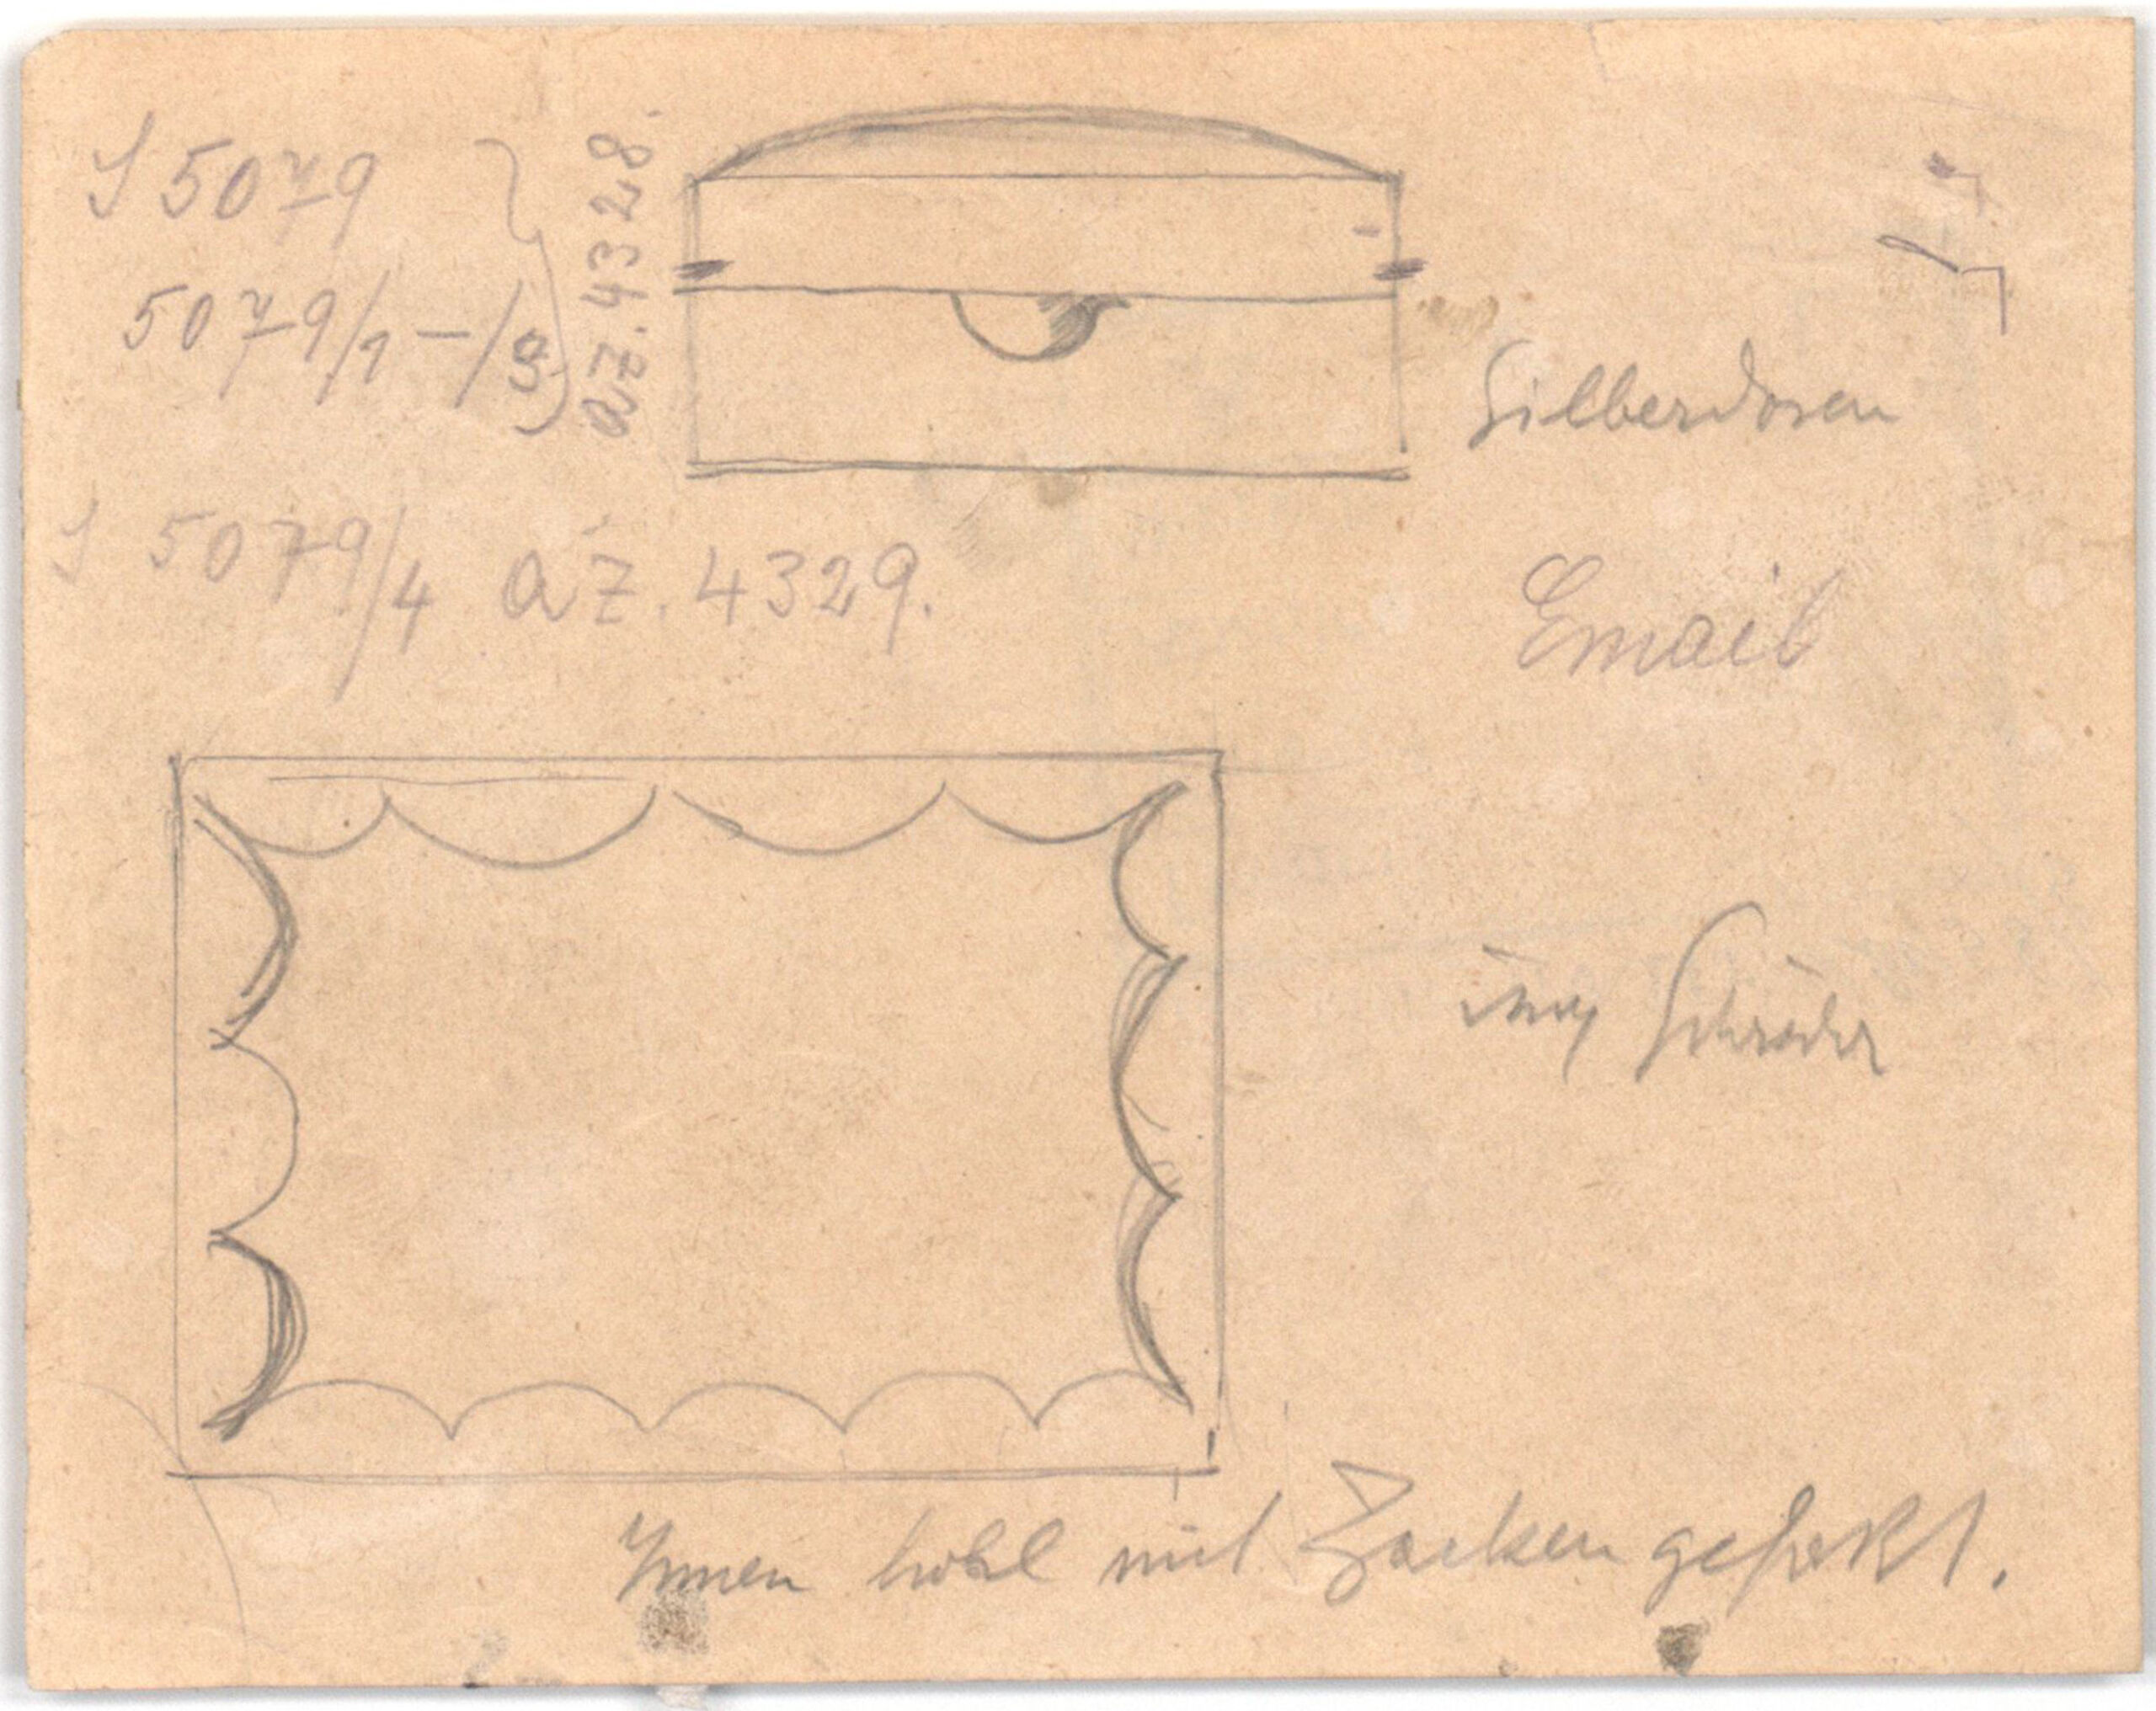 S 5079
5079/1 – /3
az. 4328.
Silberdosen
S 5079/4 az. 4329.
Email
Schröder
Innen hohl mit Zacken gesetzt.